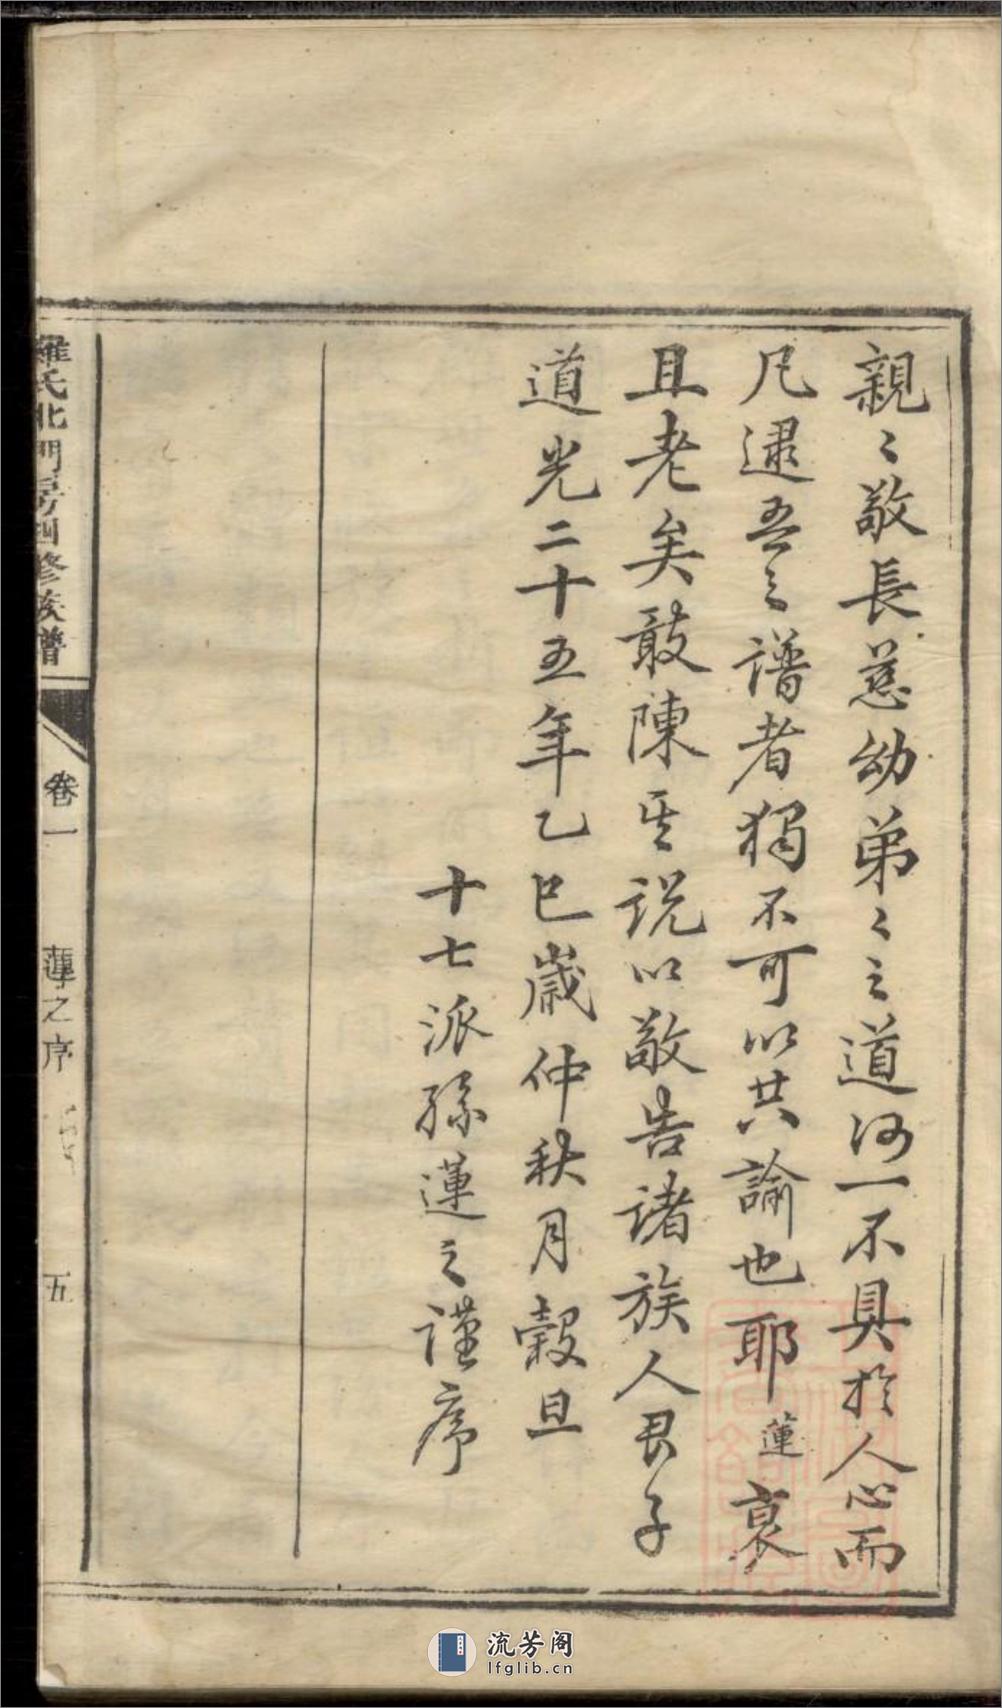 親〻敬長慈幼弟〻之道何一不具扵人心而
凡逮吾之譜者獨不可以共諭也耶蓮衰
且老矣敢陳其説以敬告諸族人君子
道光二十五年乙巳歲仲秋月穀旦
十七派孫蓮之謹序
羅氏北門房四修族譜
卷一
蓮之序
五
流芳阁
lfglib.cn